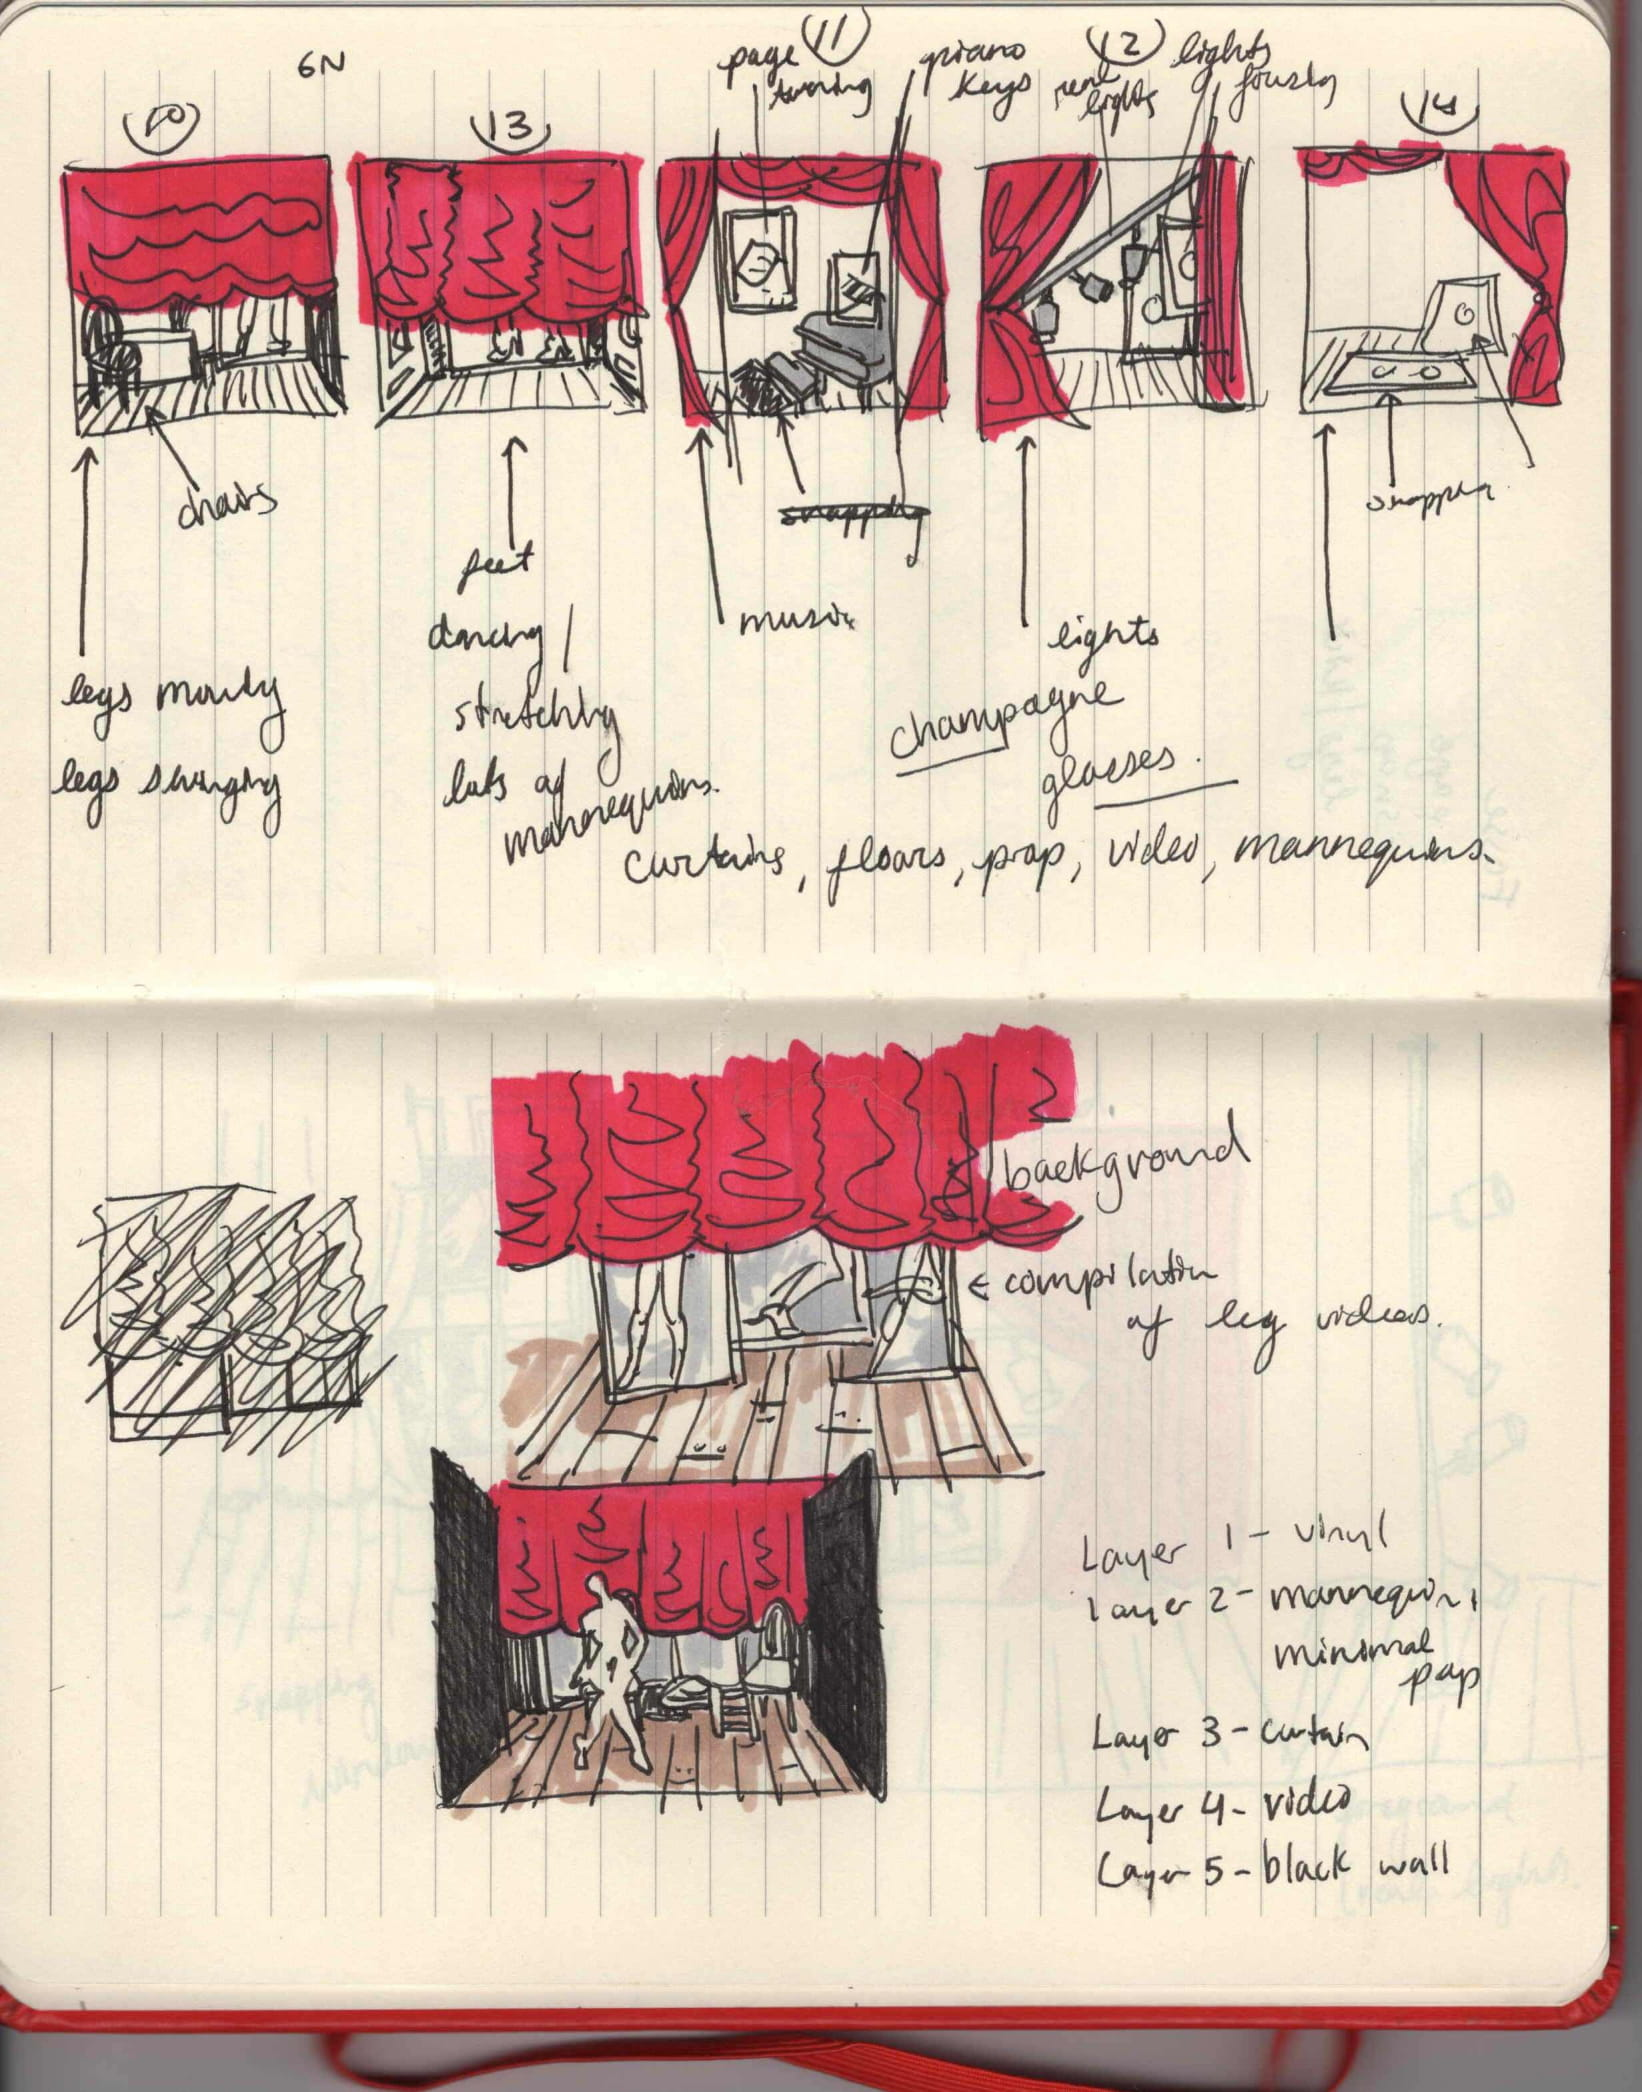 6N
page 11
turning
piano
keys
12
lights
real
lights
focusing
10
13
14
chairs
feet
snapping
snapping
dancing /
music
lights
legs moving
stretching
champagne
legs swinging
lots of
mannequins.
glasses.
curtains, floors, prop, video, mannequins.
background
← compilation
of leg videos.
Layer 1 - vinyl
Layer 2 - mannequin,
minimal
prop
Layer 3 - curtain
Layer 4 - video
Layer 5 - black wall